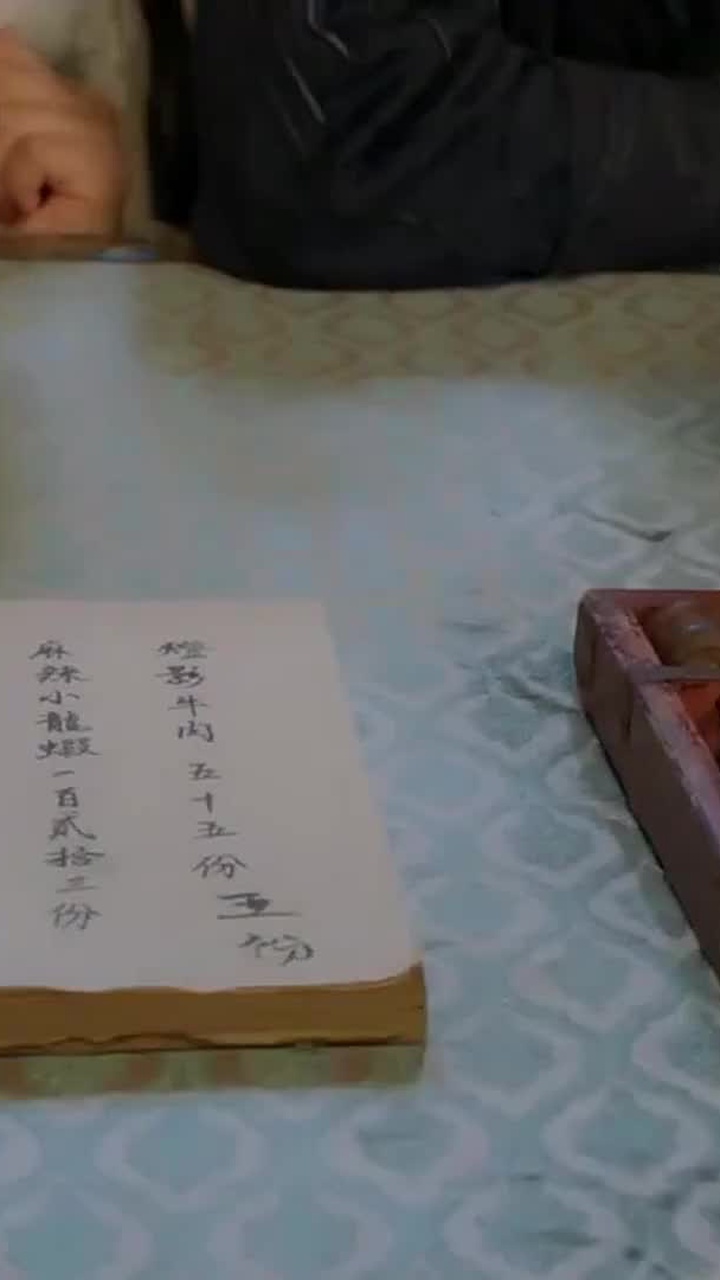 燈影牛肉 五十五份
五份
麻辣小龍蝦一百貳拾三份